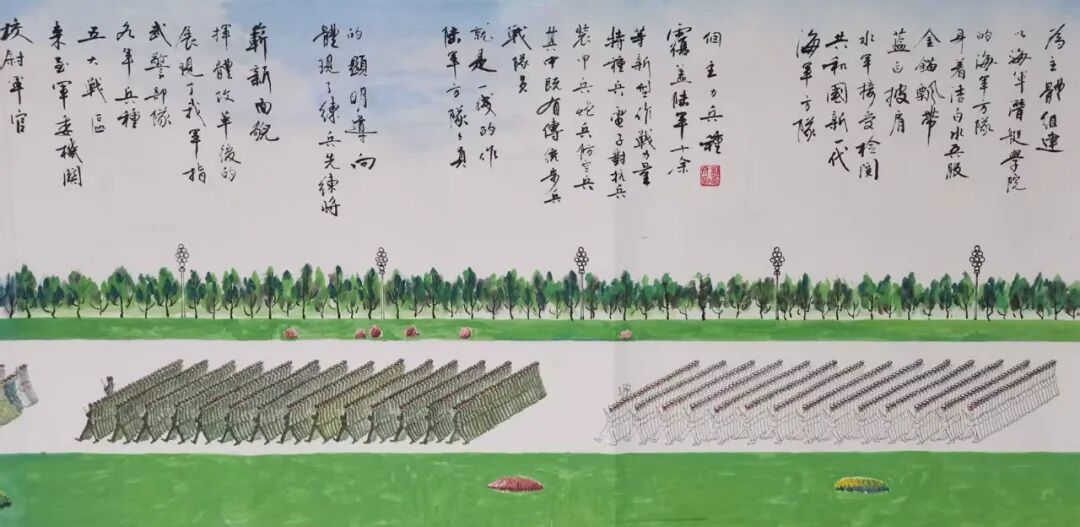 校尉軍官
来至軍委機関
五大戰區
各军兵種
武警部隊
展現了我軍指
揮體改革後的
嶄新面貌
體現了練兵先練將
的顯明導向
陸軍方隊隊員
就是一线的作
戰隊員
其中既有傳統步兵
裝甲兵炮兵防空兵
特種兵、電子對抗兵
等新型作戰力量
覆盖陸軍十余
個主力兵種
海軍方隊
共和國新一代
水軍接受檢閱
蓝白披肩
金錨飄帶
身着洁白水兵服
的海軍方隊
以海军潛艇學院
為主體組建